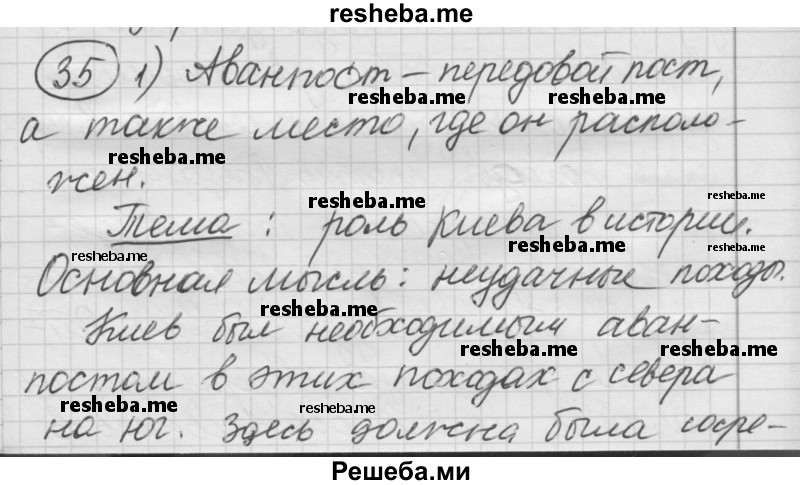 resheba.me
35 1) Аванпост – передовой пост,
resheba.me resheba.me
а также место, где он располо-
resheba.me
жен.
resheba.me
Тема : роль Киева в истории.
resheba.me resheba.me resheba.me
Основная мысль: неудачные походы.
resheba.me
Киев был необходимым аван-
resheba.me resheba.me
постом в этих походах с севера
resheba.me resheba.me
на юг. Здесь должна была сосре-
resheba.me
Решеба.ми